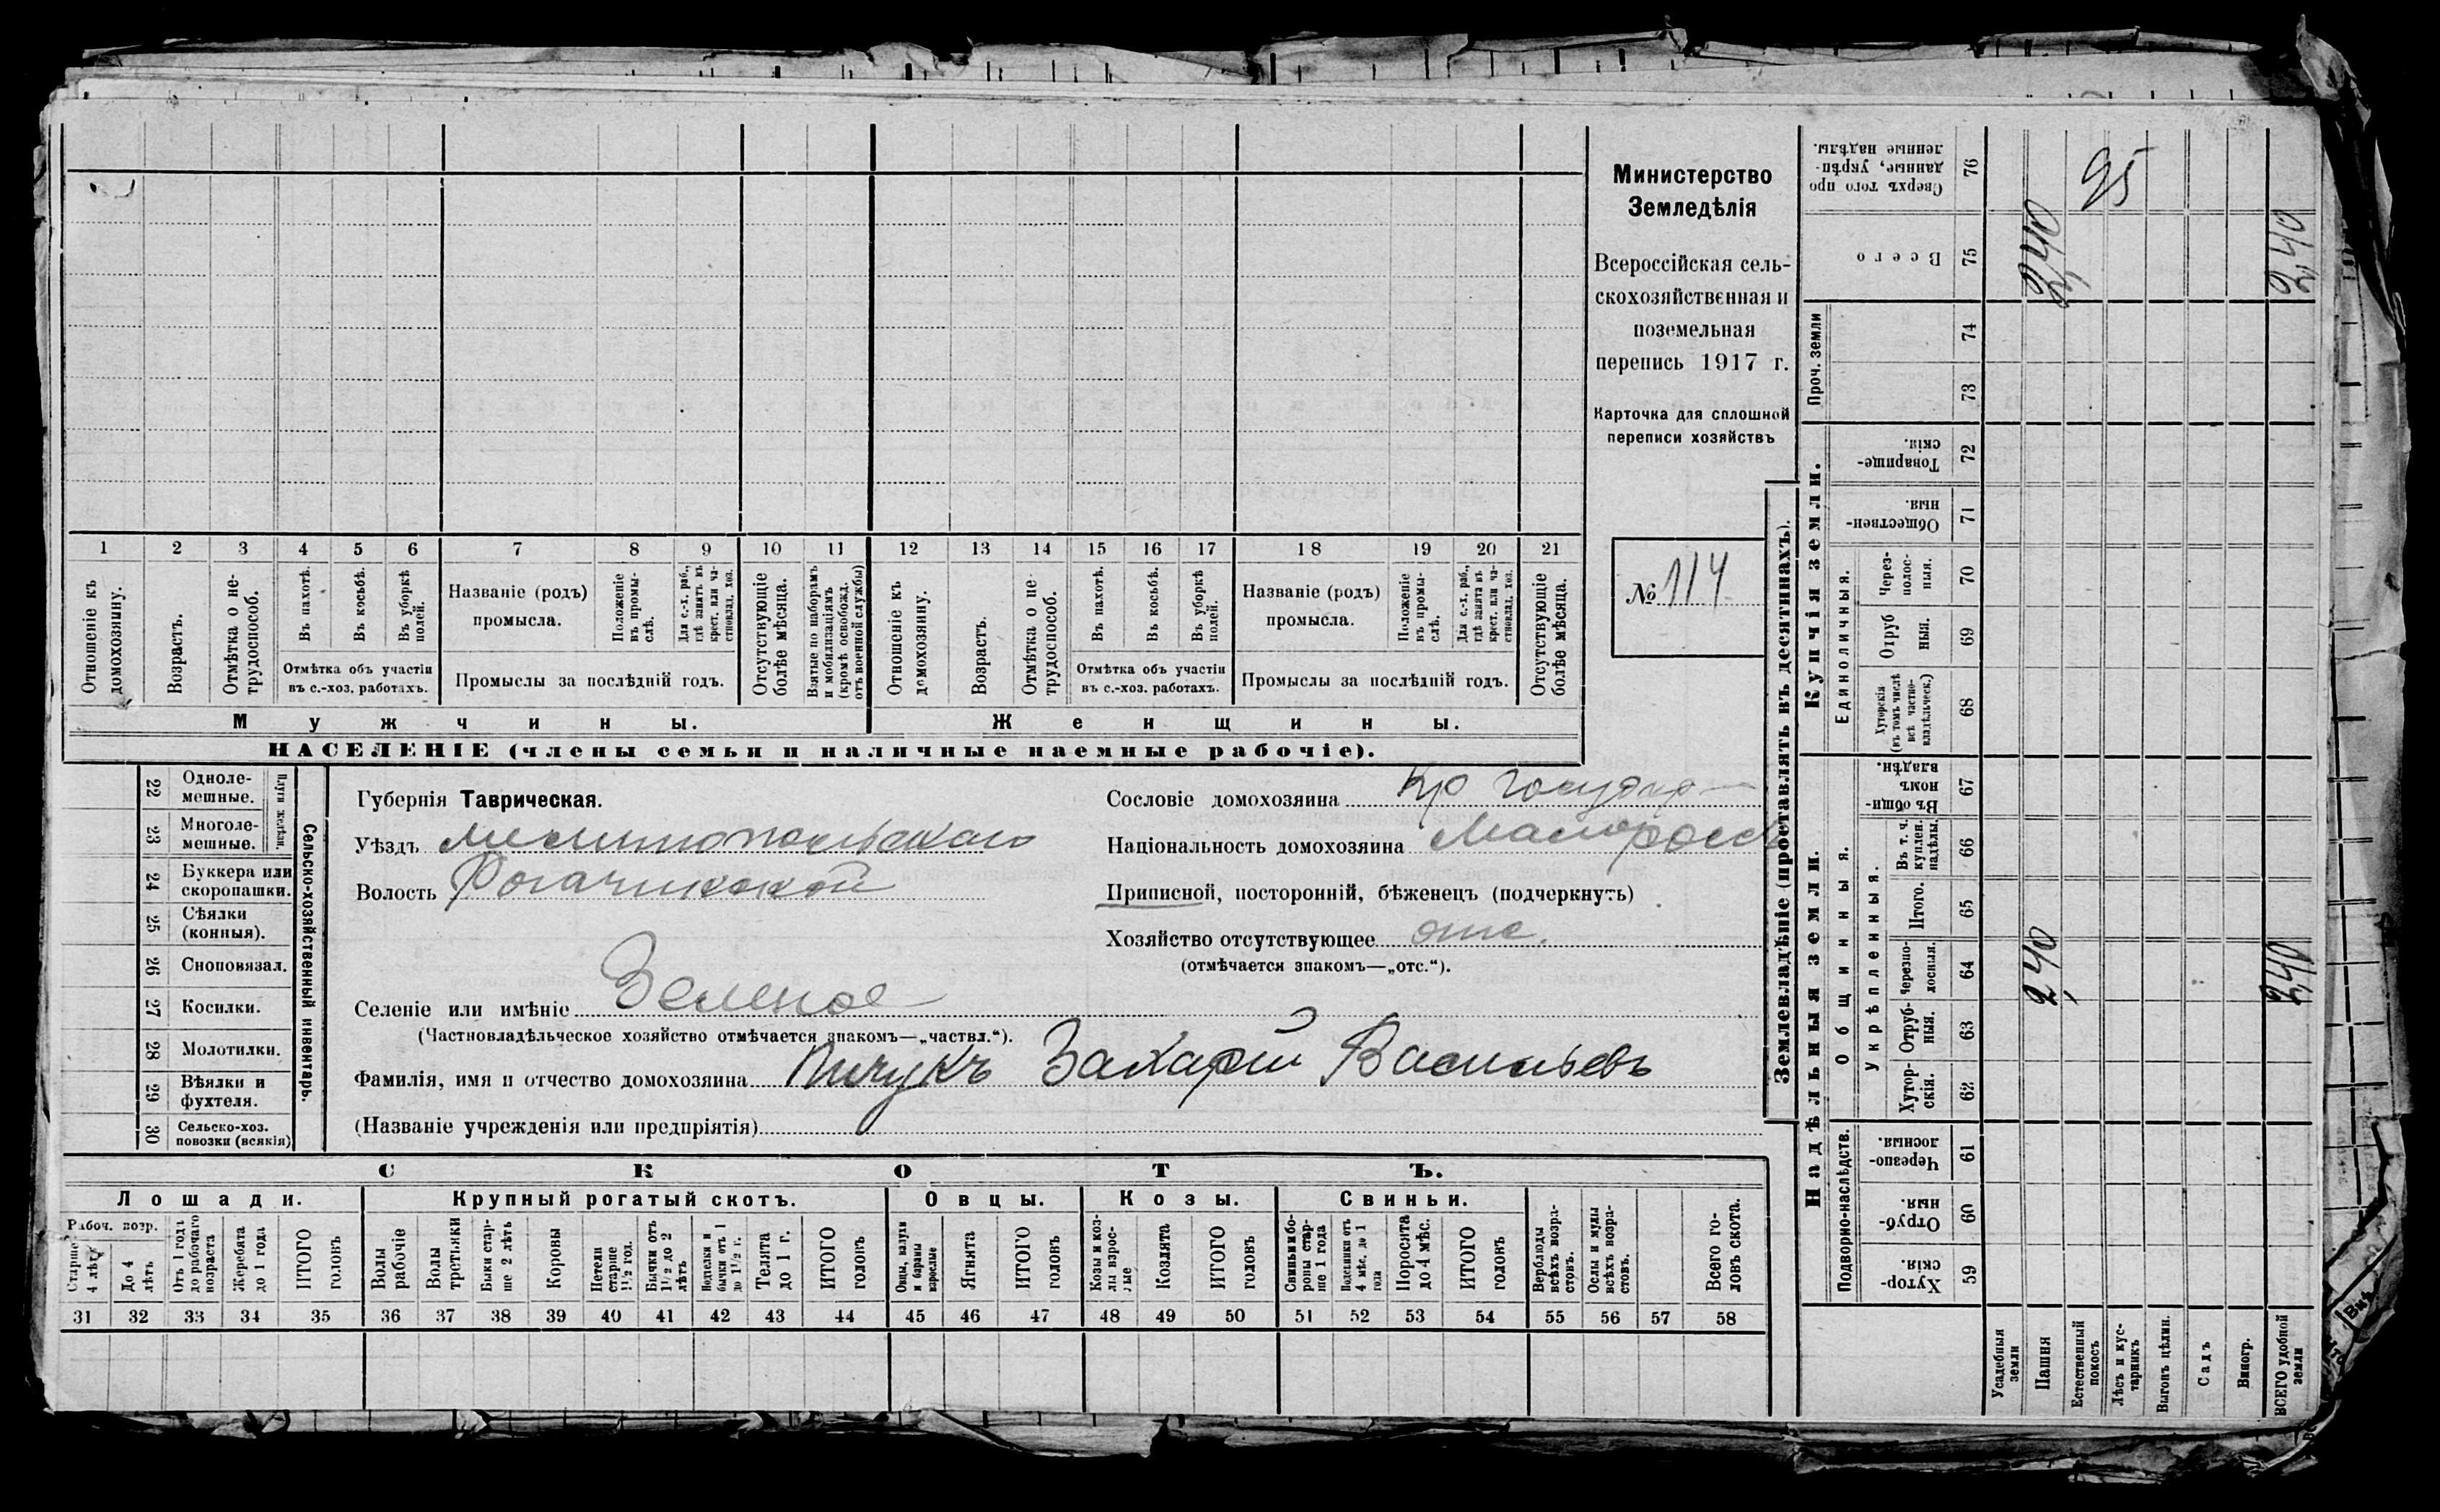 Министерство
Земледѣлія
Всероссійская сель-
скохозяйственная и
поземельная
перепись 1917 г.
Карточка для сплошной
переписи хозяйствъ
№ 114
1 2 3 4 5 6 7 8 9 10 11 12 13 14 15 16 17 18 19 20 21
Отношеніе къ домохозяину.
Возрастъ.
Отмѣтка о не-трудоспособ.
Въ пахотѣ.
Въ косьбѣ.
Въ уборкѣ полей.
Отмѣтка объ участіи
въ с.-хоз. работахъ.
Названіе (родъ)
промысла.
Положеніе въ промы-слѣ.
Для с.-х. раб., гдѣ занятъ въ крест. или ча-стновлад. хоз.
Промыслы за послѣдній годъ.
Отсутствующіе болѣе мѣсяца.
Взятые по наборамъ и мобилизаціямъ (кромѣ освобожд. отъ военной службы)
Отношеніе къ домохозяину.
Возрастъ.
Отмѣтка о не-трудоспособ.
Въ пахотѣ.
Въ косьбѣ.
Въ уборкѣ полей.
Отмѣтка объ участіи
въ с.-хоз. работахъ.
Названіе (родъ)
промысла.
Положеніе въ промы-слѣ.
Для с.-х. раб., гдѣ занята въ крест. или ча-стновлад. хоз.
Промыслы за послѣдній годъ.
Отсутствующіе болѣе мѣсяца.
Мужчины.
Женщины.
НАСЕЛЕНІЕ (члены семьи и наличные наемные рабочіе).
Сельско-хозяйственный инвентарь.
Плуги желѣзн.
22 Одноле-мешные.
23 Многоле-мешные.
24 Буккера или скоропашки.
25 Сѣялки (конныя).
26 Сноповязал.
27 Косилки.
28 Молотилки.
29 Вѣялки и фухтеля.
30 Сельско-хоз. повозки (всякія)
Губернія Таврическая.
Уѣздъ Мелитопольскаго
Волость Рогачикской
Сословіе домохозяина Кр государ
Национальность домохозяина Малоросс
Приписной, посторонній, бѣженецъ (подчеркнуть)
Хозяйство отсутствующее отс.
(отмѣчается знакомъ—„отс.“).
Селеніе или имѣніе Зеленое
(Частновладѣльческое хозяйство отмѣчается знакомъ—„частвл.“).
Фамилія, имя и отчество домохозяина Пичукъ Захарій Васильевъ
(Названіе учрежденія или предпріятія)
СКОТЪ.
Лошади.
Крупный рогатый скотъ.
Овцы.
Козы.
Свиньи.
Рабоч. возр.
Старше 4 лѣтъ
До 4 лѣтъ
Отъ 1 года до рабочаго возраста
Жеребята до 1 года
ИТОГО головъ
Волы рабочіе
Волы третьяки
Быки стар-ше 2 лѣтъ
Коровы
Нетели старше 1½ год.
Бычки отъ 1½ до 2 лѣтъ
Подтелки и бычки отъ 1 до 1½ г.
Телята до 1 г.
ИТОГО головъ
Овцы, валухи и бараны взрослые
Ягнята
ИТОГО головъ
Козы и коз-лы взрос-лые
Козлята
ИТОГО головъ
Свиньи и бо-ровы стар-ше 1 года
Подсвинки отъ 4 мѣс. до 1 года
Поросята до 4 мѣс.
ИТОГО головъ
Верблюды всѣхъ возра-стовъ.
Ослы и мулы всѣхъ возра-стовъ.
Всего го-ловъ скота.
31 32 33 34 35 36 37 38 39 40 41 42 43 44 45 46 47 48 49 50 51 52 53 54 55 56 57 58
Землевладѣніе (проставлять въ десятинахъ).
Надѣльныя земли.
Купчія земли.
Проч. земли
Подворно-наслѣдств.
Общинныя.
Укрѣпленныя.
Единоличныя.
Сверхъ того про-данные, укрѣп-ленные надѣлы. 76 95
Всего 75 2,40 2,40
74
73
Товарище-скія. 72
Обществен-ныя. 71
Через-полос-ныя. 70
Отруб-ныя. 69
Хуторскія (въ томъ числѣ всѣ частно-владѣльческ.) 68
Въ общин-номъ владѣн. 67
Въ т. ч. куплен. надѣлы. 66
Итого. 65
Черезпо-лосныя. 64 2,40 2,40
Отруб-ныя. 63
Хутор-скія. 62
Черезпо-лосныя. 61
Отруб-ныя 60
Хутор-скія. 59
Усадебныя земли
Пашня
Естественный покосъ
Лѣсъ и кус-тарникъ
Выгонъ цѣлин.
Садъ
Виногр.
ВСЕГО удобной земли